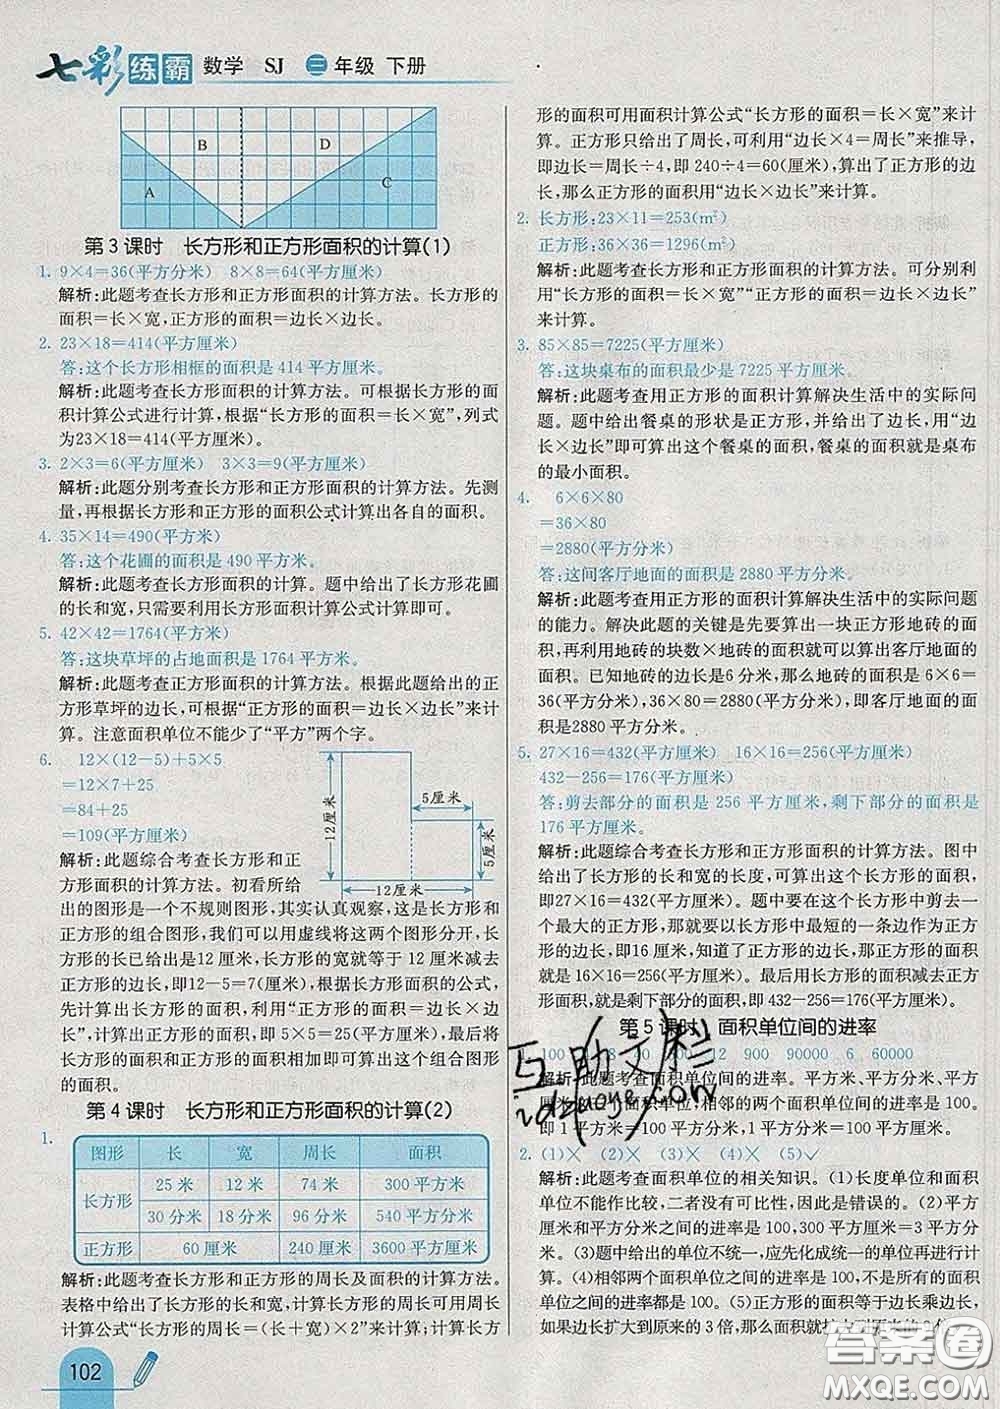 七彩练霸 数学 SJ 三年级 下册
A
B
D
C
第3课时 长方形和正方形面积的计算(1)
1. 9×4=36(平方分米) 8×8=64(平方厘米)
解析:此题考查长方形和正方形面积的计算方法。长方形的
面积=长×宽,正方形的面积=边长×边长。
2. 23×18=414(平方厘米)
答:这个长方形相框的面积是 414 平方厘米。
解析:此题考查长方形面积的计算方法。可根据长方形的面
积计算公式进行计算,根据“长方形的面积=长×宽”,列式
为23×18=414(平方厘米)。
3. 2×3=6(平方厘米) 3×3=9(平方厘米)
解析:此题分别考查长方形和正方形面积的计算方法。先测
量,再根据长方形和正方形的面积公式计算出各自的面积。
4. 35×14=490(平方米)
答:这个花圃的面积是 490 平方米。
解析:此题考查长方形面积的计算。题中给出了长方形花圃
的长和宽,只需要利用长方形面积计算公式计算即可。
5. 42×42=1764(平方米)
答:这块草坪的占地面积是 1764 平方米。
解析:此题考查正方形面积的计算方法。根据此题给出的正
方形草坪的边长,可根据“正方形的面积=边长×边长”来计
算。注意面积单位不能少了“平方”两个字。
6. 12×(12-5)+5×5
=12×7+25
=84+25
=109(平方厘米)
12厘米
5厘米
5厘米
12厘米
解析:此题综合考查长方形和正
方形面积的计算方法。初看所给
出的图形是一个不规则图形,其实认真观察,这是长方形和
正方形的组合图形,我们可以用虚线将这两个图形分开,长
方形的长已给出是12 厘米,长方形的宽就等于 12 厘米减去
正方形的边长,即12-5=7(厘米),根据长方形面积的公式,
先计算出长方形的面积,利用“正方形的面积=边长×边
长”,计算出正方形的面积,即 5×5=25(平方厘米),最后将
长方形的面积和正方形的面积相加即可计算出这个组合图形
的面积。
第4课时 长方形和正方形面积的计算(2)
1.
图形 长 宽 周长 面积
长方形 25 米 12 米 74 米 300 平方米
30 分米 18 分米 96 分米 540 平方分米
正方形 60 厘米 240 厘米 3600 平方厘米
解析:此题考查长方形和正方形的周长及面积的计算方法。
表格中给出了长方形的长和宽,计算长方形的周长可用周长
计算公式“长方形的周长=(长+宽)×2”来计算;计算长方
102
形的面积可用面积计算公式“长方形的面积=长×宽”来计
算。正方形只给出了周长,可利用“边长×4=周长”来推导,
即边长=周长÷4,即 240÷4=60(厘米),算出了正方形的边
长,那么正方形的面积用“边长×边长”来计算。
2. 长方形:23×11=253(m²)
正方形:36×36=1296(m²)
解析:此题考查长方形和正方形的面积计算。可分别利
用“长方形的面积=长×宽”“正方形的面积=边长×边长”
来计算。
3. 85×85=7225(平方厘米)
答:这块桌布的面积最少是 7225 平方厘米。
解析:此题考查用正方形的面积计算解决生活中的实际问
题。题中给出餐桌的形状是正方形,并给出了边长,用“边
长×边长”即可算出这个餐桌的面积,餐桌的面积就是桌布
的最小面积。
4. 6×6×80
=36×80
=2880(平方分米)
答:这间客厅地面的面积是 2880 平方分米。
解析:此题考查用正方形的面积计算解决生活中的实际问题
的能力。解决此题的关键是先要算出一块正方形地砖的面
积,再利用地砖的块数×地砖的面积就可以算出客厅地面的
面积。已知地砖的边长是6 分米,那么地砖的面积是 6×6=
36(平方分米),36×80=2880(平方分米),即客厅地面的面
积是2880 平方分米。
5. 27×16=432(平方厘米) 16×16=256(平方厘米)
432-256=176(平方厘米)
答:剪去部分的面积是 256 平方厘米,剩下部分的面积是
176 平方厘米。
解析:此题综合考查长方形和正方形的面积计算方法。图中
给出了长方形的长和宽的长度,可直接计算长方形的面积,
即27×16=432(平方厘米)。题中要在这个长方形中剪去一
个最大的正方形,那么就要以长方形中最短的一条边作为正方
形的边长,即16 厘米,知道了正方形的边长,那正方形的面积
就是 16×16=256(平方厘米)。最后用长方形的面积减去正方
形的面积,就是剩下部分的面积,即 432-256=176(平方厘米)。
第5课时 面积单位间的进率
1. 100 12 900 90000 6 60000
解析:此题考查面积单位间的进率。平方米、平方分米、平方厘
米 面积单位,相邻的两个面积单位间的进率是 100。
即 1 平方米=100 平方分米,1 平方分米=100 平方厘米。
2. (1)× (2)× (3)× (4)× (5)✓
解析:此题考查面积单位的相关知识。(1)长度单位和面积
单位不能作比较,二者没有可比性,因此是错误的。(2)平方
厘米和平方分米之间的进率是 100,300 平方厘米=3平方分
米。(3)题中给出的单位不统一,应先化成统一的单位再计
算。(4)相邻两个面积单位之间的进率是 100,不是所有的面积
单位之间的进率都是 100。(5)正方形的面积等于边长乘边长,
如果边长扩大到原来的 3 倍,那么面积就扩大到原来的 9 倍。
互助文档
答案圈
MXQE.COM